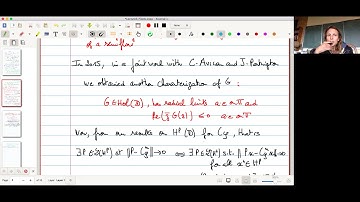 of a semiflow
In 2015, in a joint work with C. Avicou and J. Partington
we obtained another characterization of G :
G ∈ Hol(D), has radial limits a.e. on 𝕋 and
Re(z̄ G(z)) ≤ 0 a.e. on 𝕋
Now, from our results on H^p(D) for Cφ, that is
∃ P ∈ L(H^p) st ‖P - Cφ^n‖ → 0 ⇔ ∃ P ∈ L(H^p) s.t. ‖Px - Cφ^n x‖ → 0
for all x ∈ H^p